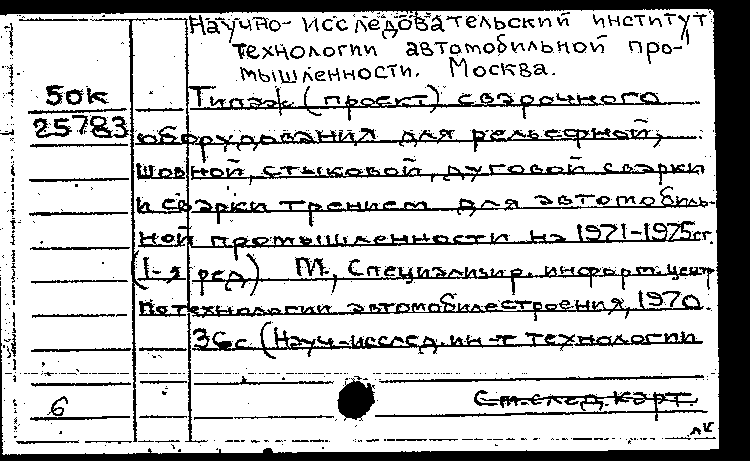 Научно-исследовательский институт
технологии автомобильной про-
мышленности. Москва.
50к Типаж (проект) сварочного
25783 оборудования для рельефной,
шовной, стыковой, дуговой сварки
и сварки трением для автомобиль-
ной промышленности на 1971-1975гг.
(1-я ред) М., Специализир. информ. центр
по технологии автомобилестроения, 1970.
36с (Науч-исслед. ин-т технологии
6 См.след.карт.
лк